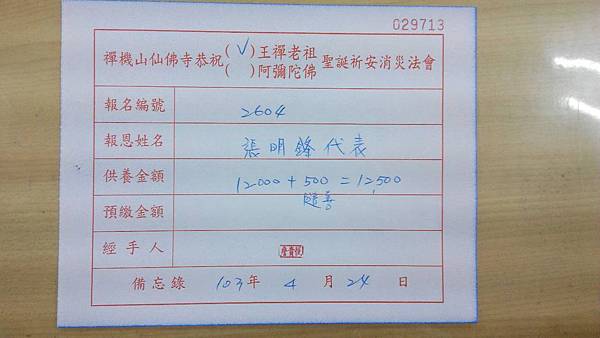 029713
禪機山仙佛寺恭祝(✓)王禪老祖 聖誕祈安消災法會
( )阿彌陀佛
報名編號 2604
報恩姓名 張明鋒代表
供養金額 12000 + 500 = 12,500
隨善
預繳金額
經手人
備忘錄 103年 4 月 24 日